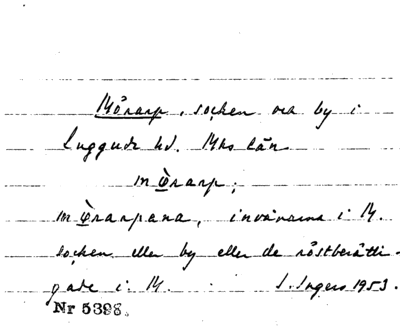 Mörarp, socken och by i
Luggude hd. Mhs län
mÖ̀rarp;
mÖ̀rarpana, invånarna i M.
socken eller by eller de röstberätti-
gade i M. I. Ingers 1953.
Nr 5398.